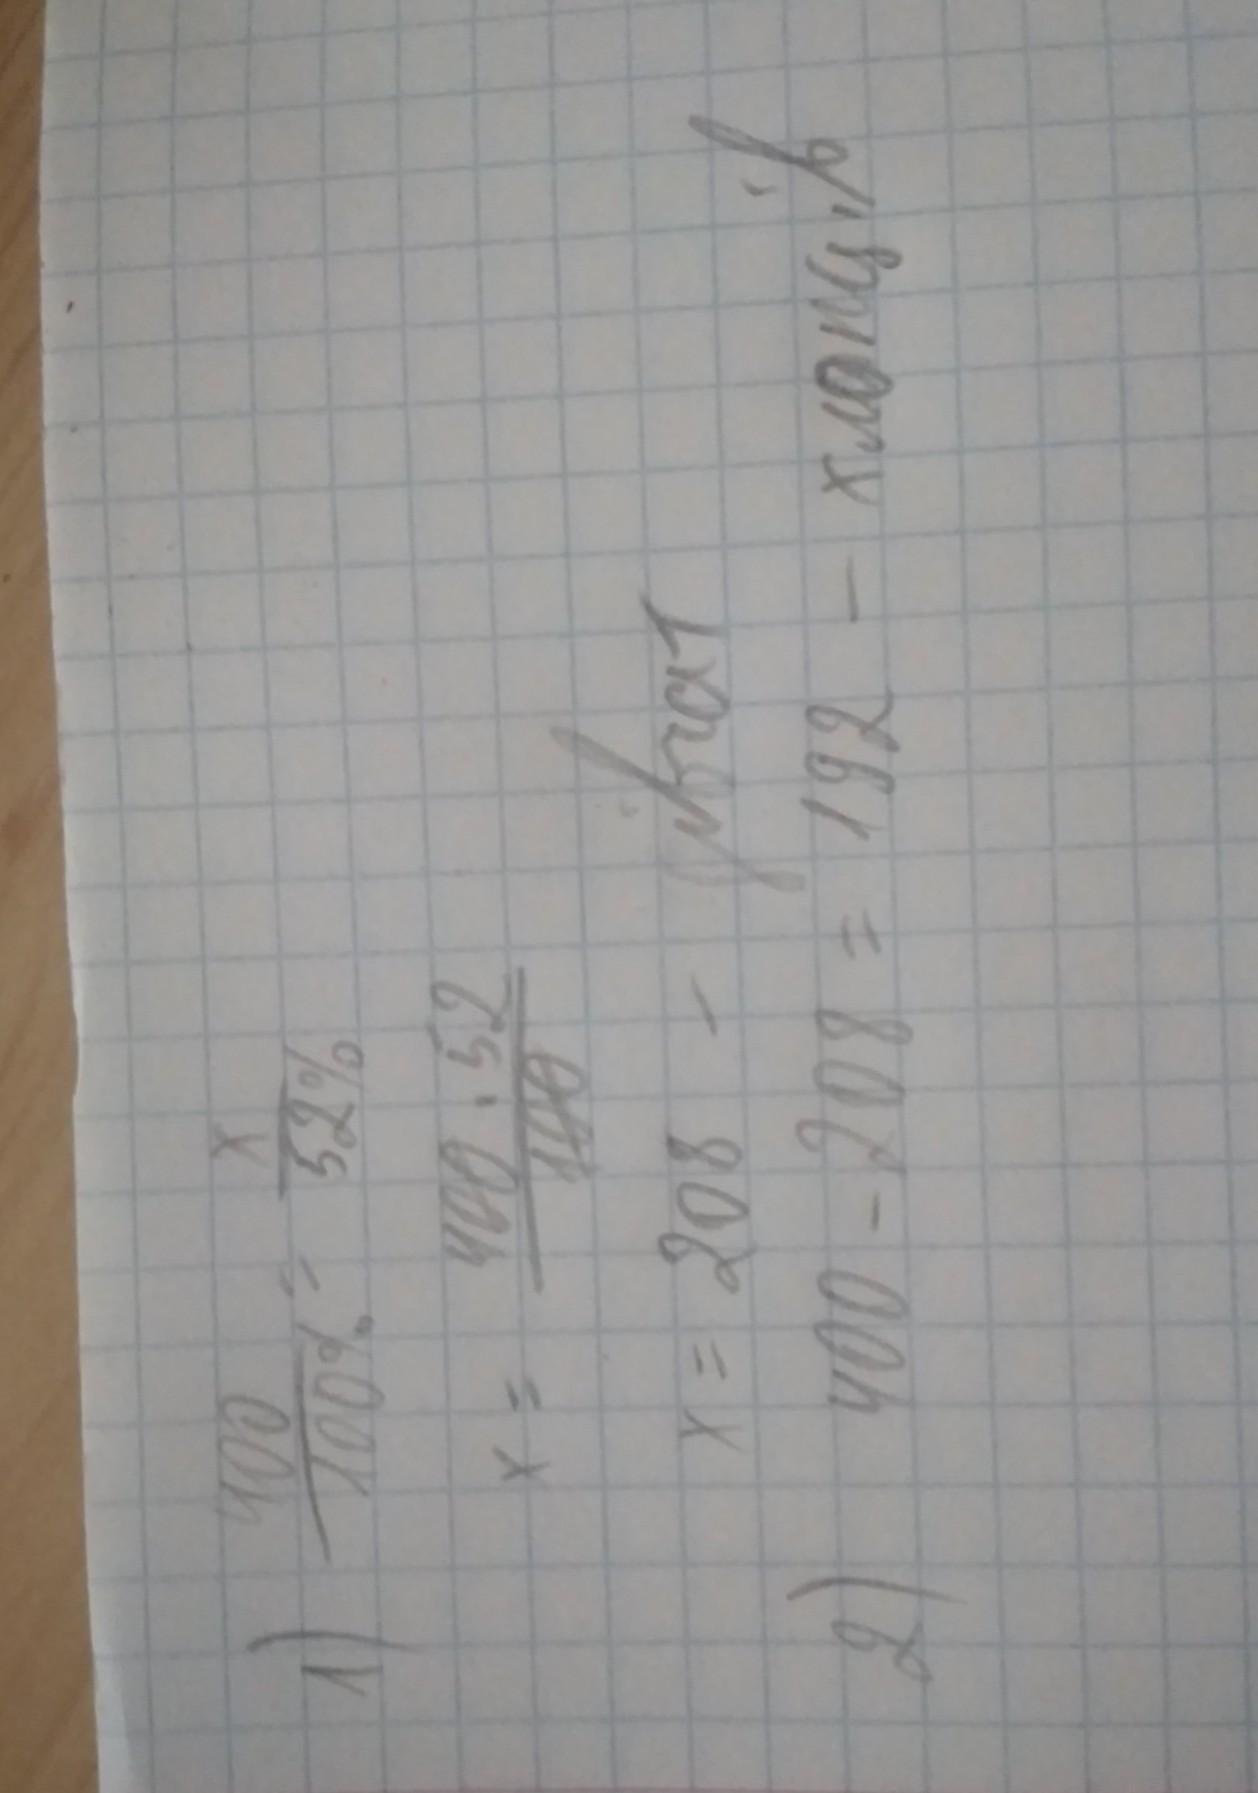 1) 400/100% = x/52%
x = 400 · 52/100
x = 208 - дівчат
2) 400 - 208 = 192 - хлопців